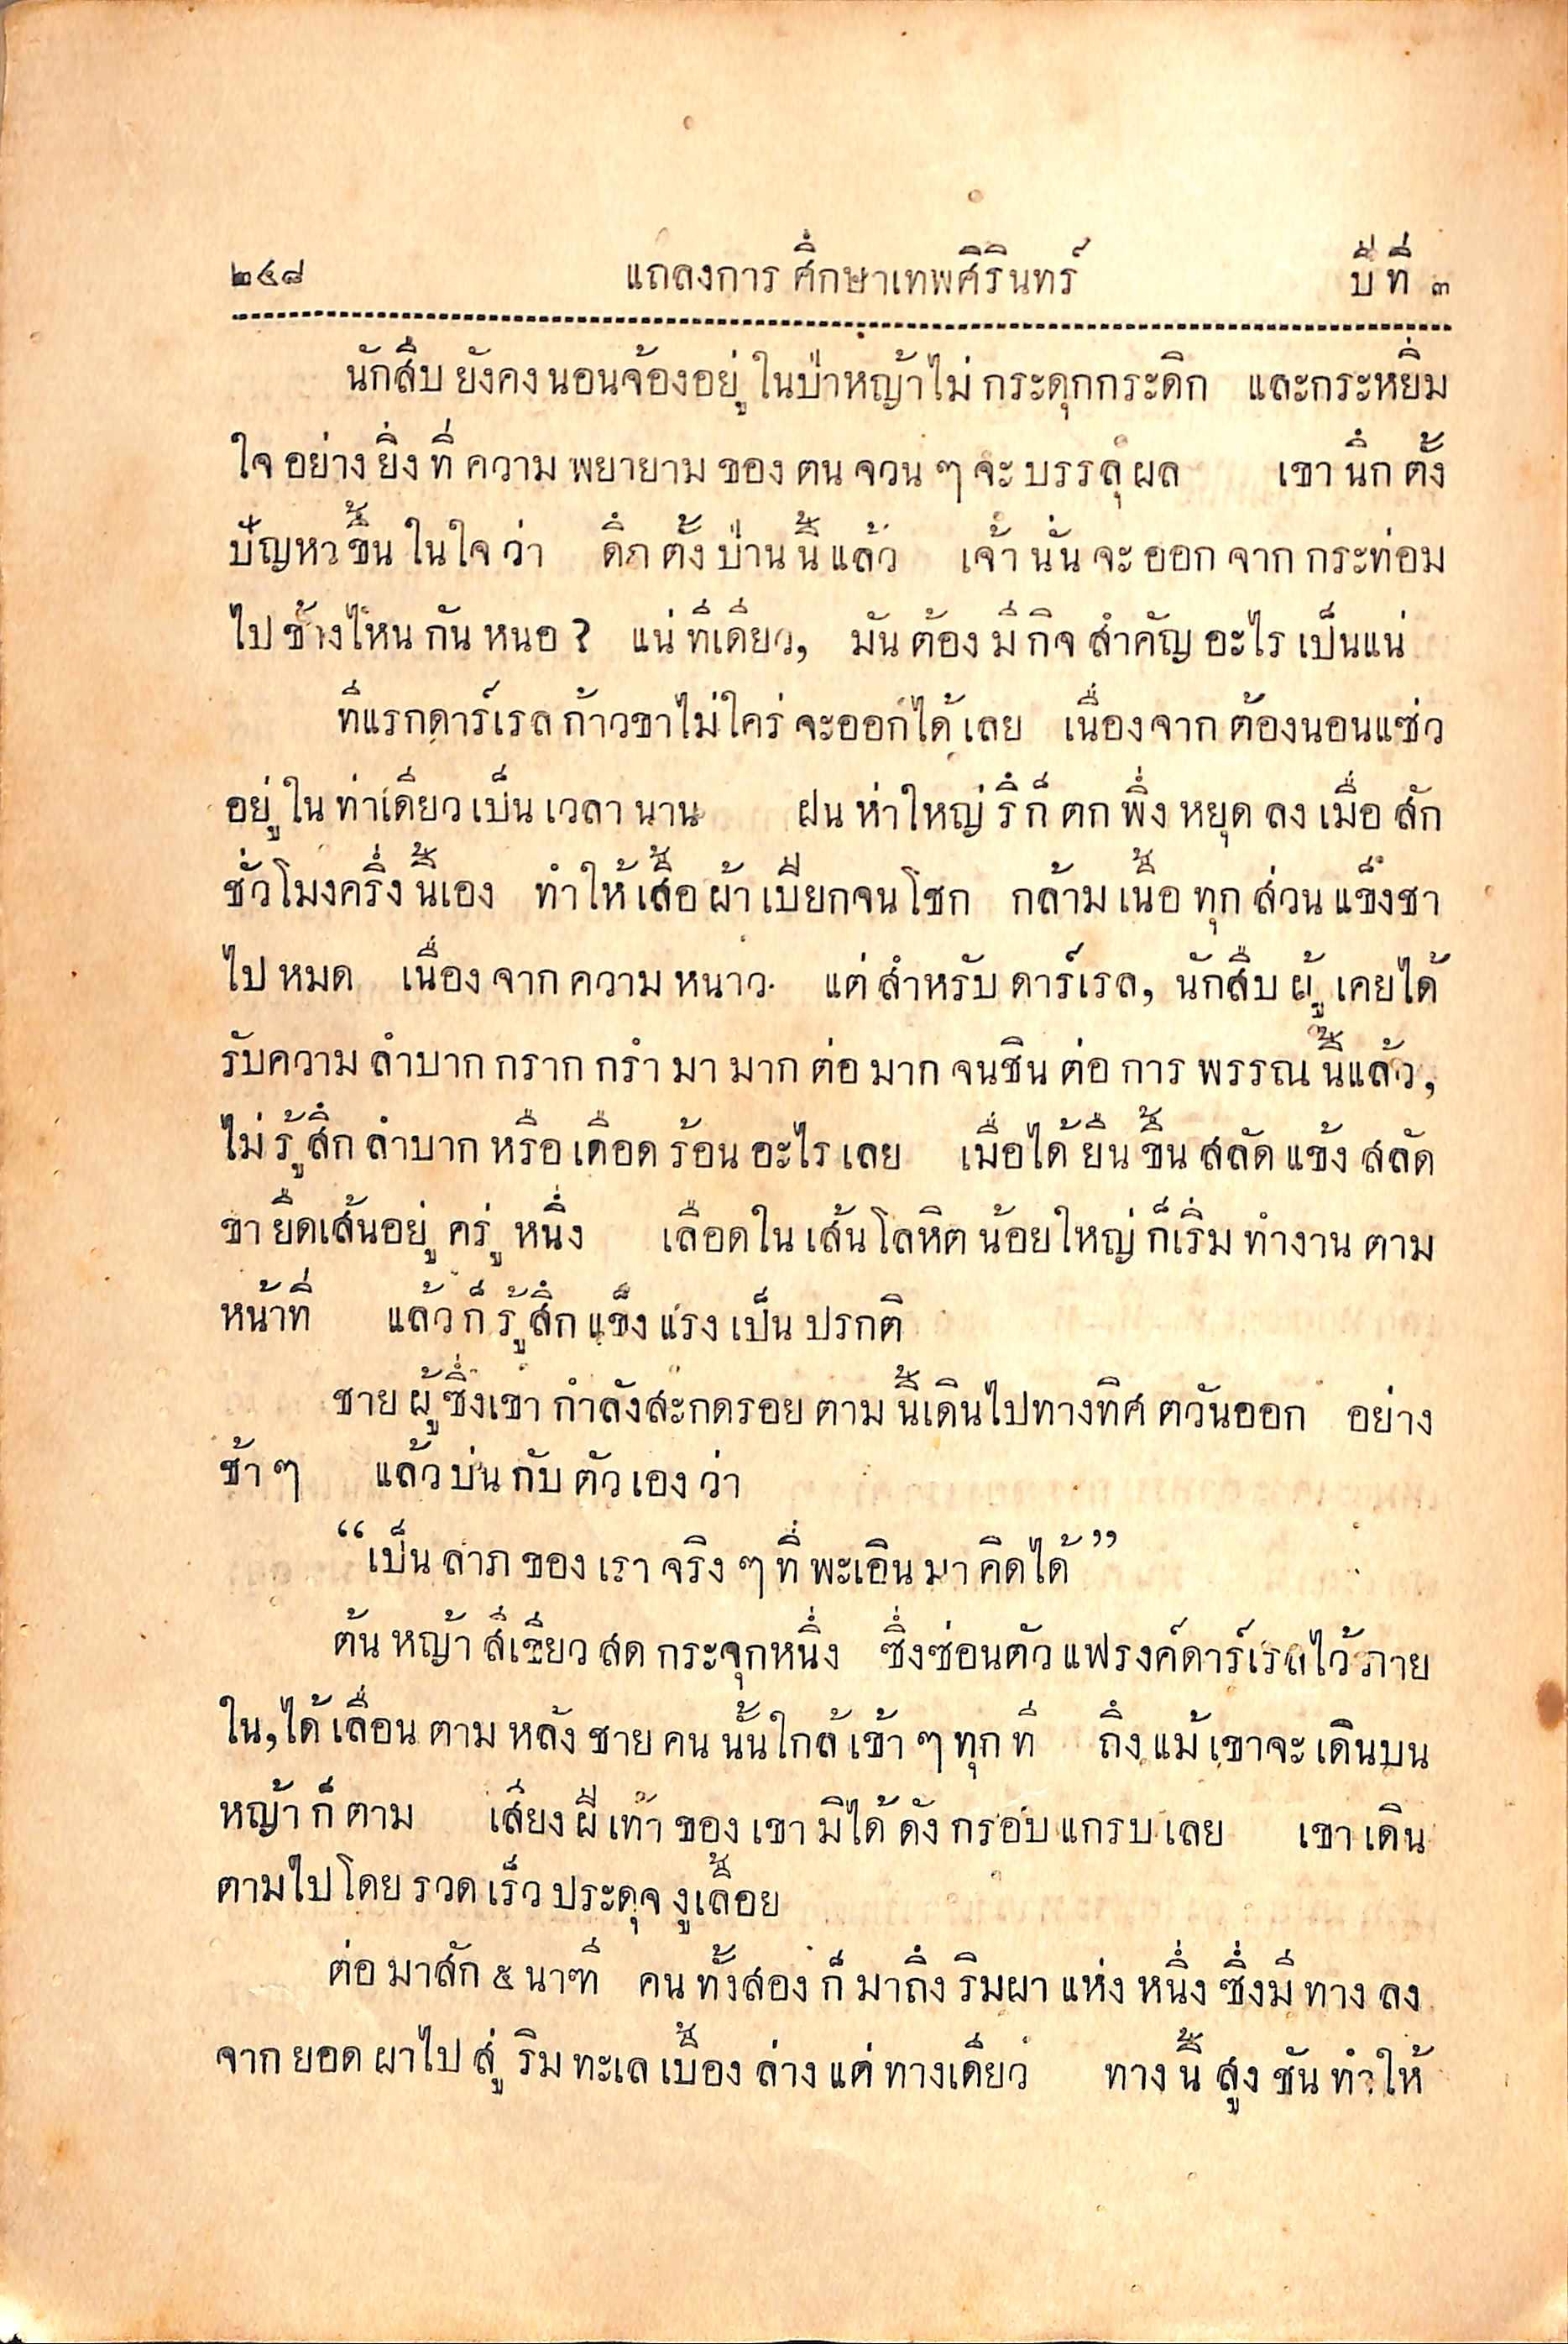 ๒๔๘ แถลงการศึกษาเทพศิรินทร์ ปีที่ ๓
นักสืบยังคงนอนจ้องอยู่ในป่าหญ้าไม่กระดุกกระดิก และกระหยิ่ม
ใจอย่างยิ่งที่ความพยายามของตนจวนๆจะบรรลุผล เขานึกตั้ง
ปัญหาขึ้นในใจว่า ดึกตั้งป่านนี้แล้ว เจ้านั่นจะออกจากกระท่อม
ไปข้างไหนกันหนอ? แน่ทีเดียว, มันต้องมีกิจสำคัญอะไรเป็นแน่
ทีแรกดาร์เรลก้าวขาไม่ใคร่จะออกได้เลย เนื่องจากต้องนอนแซ่ว
อยู่ในท่าเดียวเป็นเวลานาน ฝนห่าใหญ่รึก็ตกพึ่งหยุดลงเมื่อสัก
ชั่วโมงครึ่งนี้เอง ทำให้เสื้อผ้าเปียกจนโชก กล้ามเนื้อทุกส่วนแข็งชา
ไปหมด เนื่องจากความหนาว. แต่สำหรับดาร์เรล, นักสืบผู้เคยได้
รับความลำบากกรากกรำมามากต่อมากจนชินต่อการพรรณนี้แล้ว,
ไม่รู้สึกลำบากหรือเดือดร้อนอะไรเลย เมื่อได้ยืนขึ้นสลัดแข้งสลัด
ขายืดเส้นอยู่ครู่หนึ่ง เลือดในเส้นโลหิตน้อยใหญ่ก็เริ่มทำงานตาม
หน้าที่ แล้วก็รู้สึกแข็งแรงเป็นปรกติ
ชายผู้ซึ่งเขากำลังสะกดรอยตามนี้เดินไปทางทิศตวันออก อย่าง
ช้าๆ แล้วบ่นกับตัวเองว่า
“เป็นลาภของเราจริงๆที่พะเอินมาคิดได้”
ต้นหญ้าสีเขียวสดกระจุกหนึ่ง ซึ่งซ่อนตัวแฟรงค์ดาร์เรลไว้ภาย
ใน,ได้เลื่อนตามหลังชายคนนั้นใกล้เข้าๆทุกที ถึงแม้เขาจะเดินบน
หญ้าก็ตาม เสียงฝีเท้าของเขามิได้ดังกรอบแกรบเลย เขาเดิน
ตามไปโดยรวดเร็วประดุจงูเลื้อย
ต่อมาสัก ๕ นาฑี คนทั้งสองก็มาถึงริมผาแห่งหนึ่งซึ่งมีทางลง
จากยอดผาไปสู่ริมทะเลเบื้องล่างแต่ทางเดียว ทางนี้สูงชันทำให้